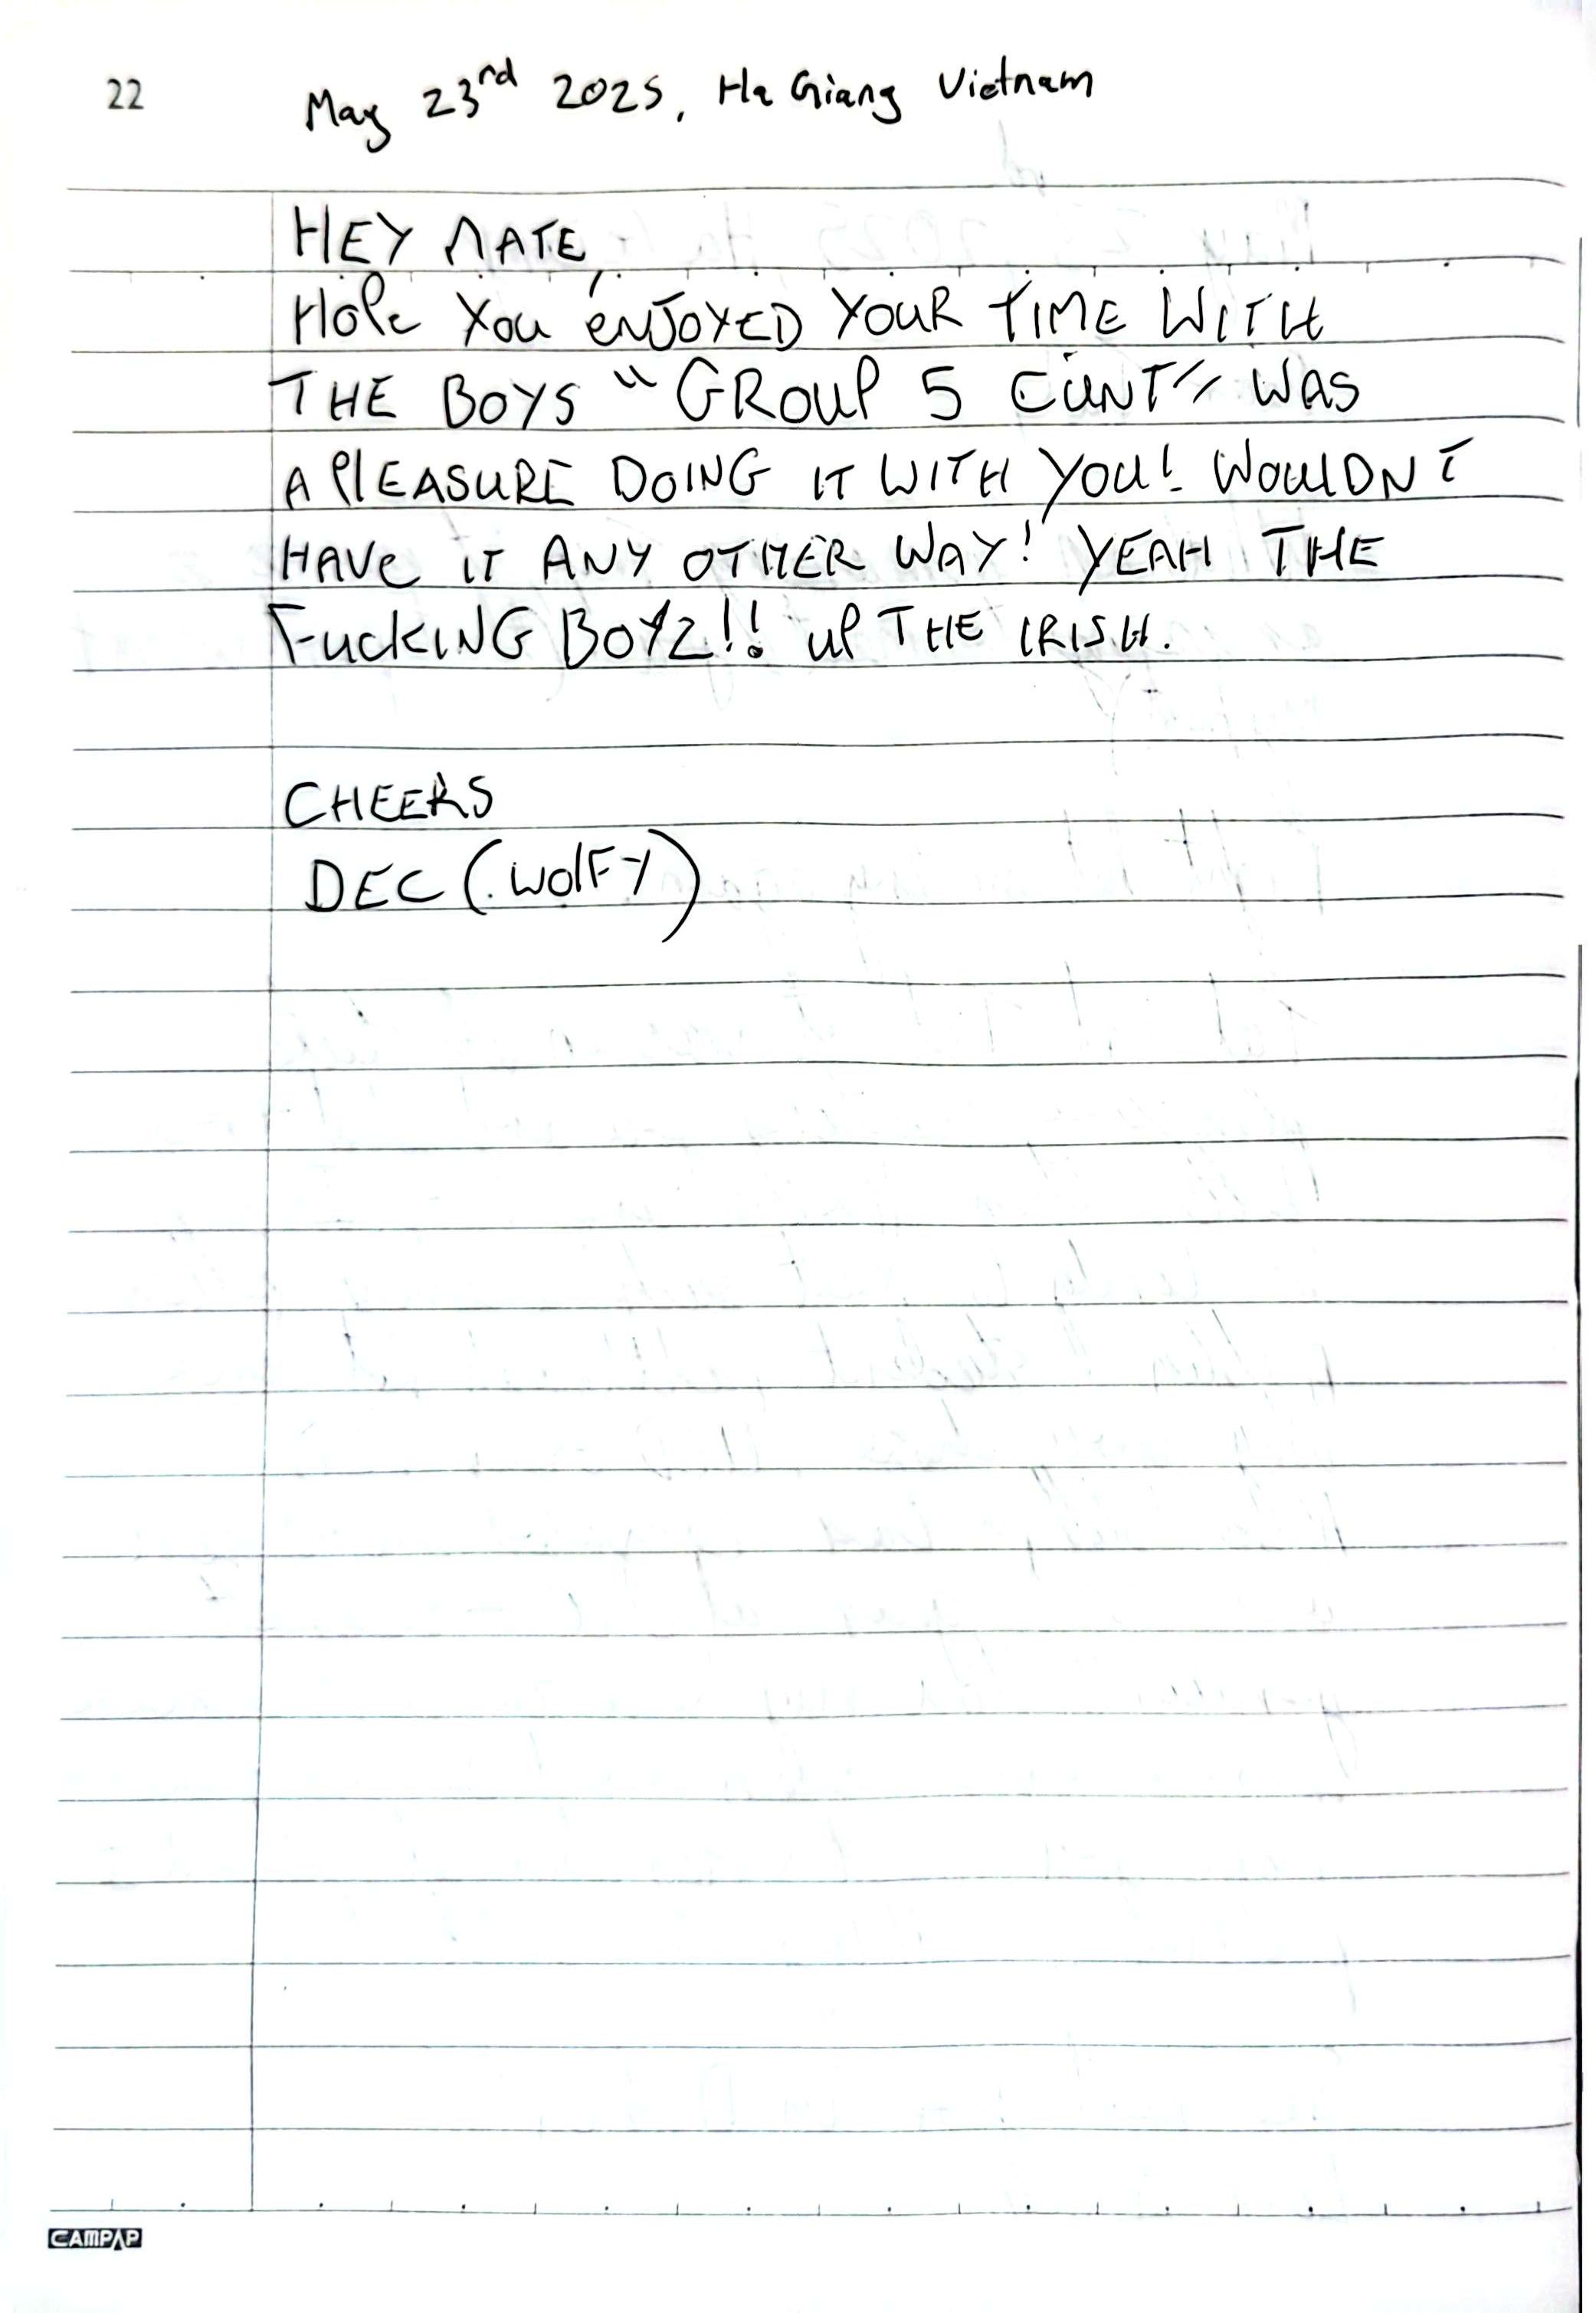 22
May 23rd 2025, Ha Giang Vietnam
HEY MATE,
HOPe You enJOYED YOUR TIME WITH
THE BOYS "GROUP 5 CUNT" WAS
A PlEASURE DOING IT WITH YOU! WOUlDNT
HAVe IT ANY OTHER WAY! YEAH THE
FucKING BOYZ!! UP THE IRISH.
CHEERS
DEC (WolFY)
CAMPAP